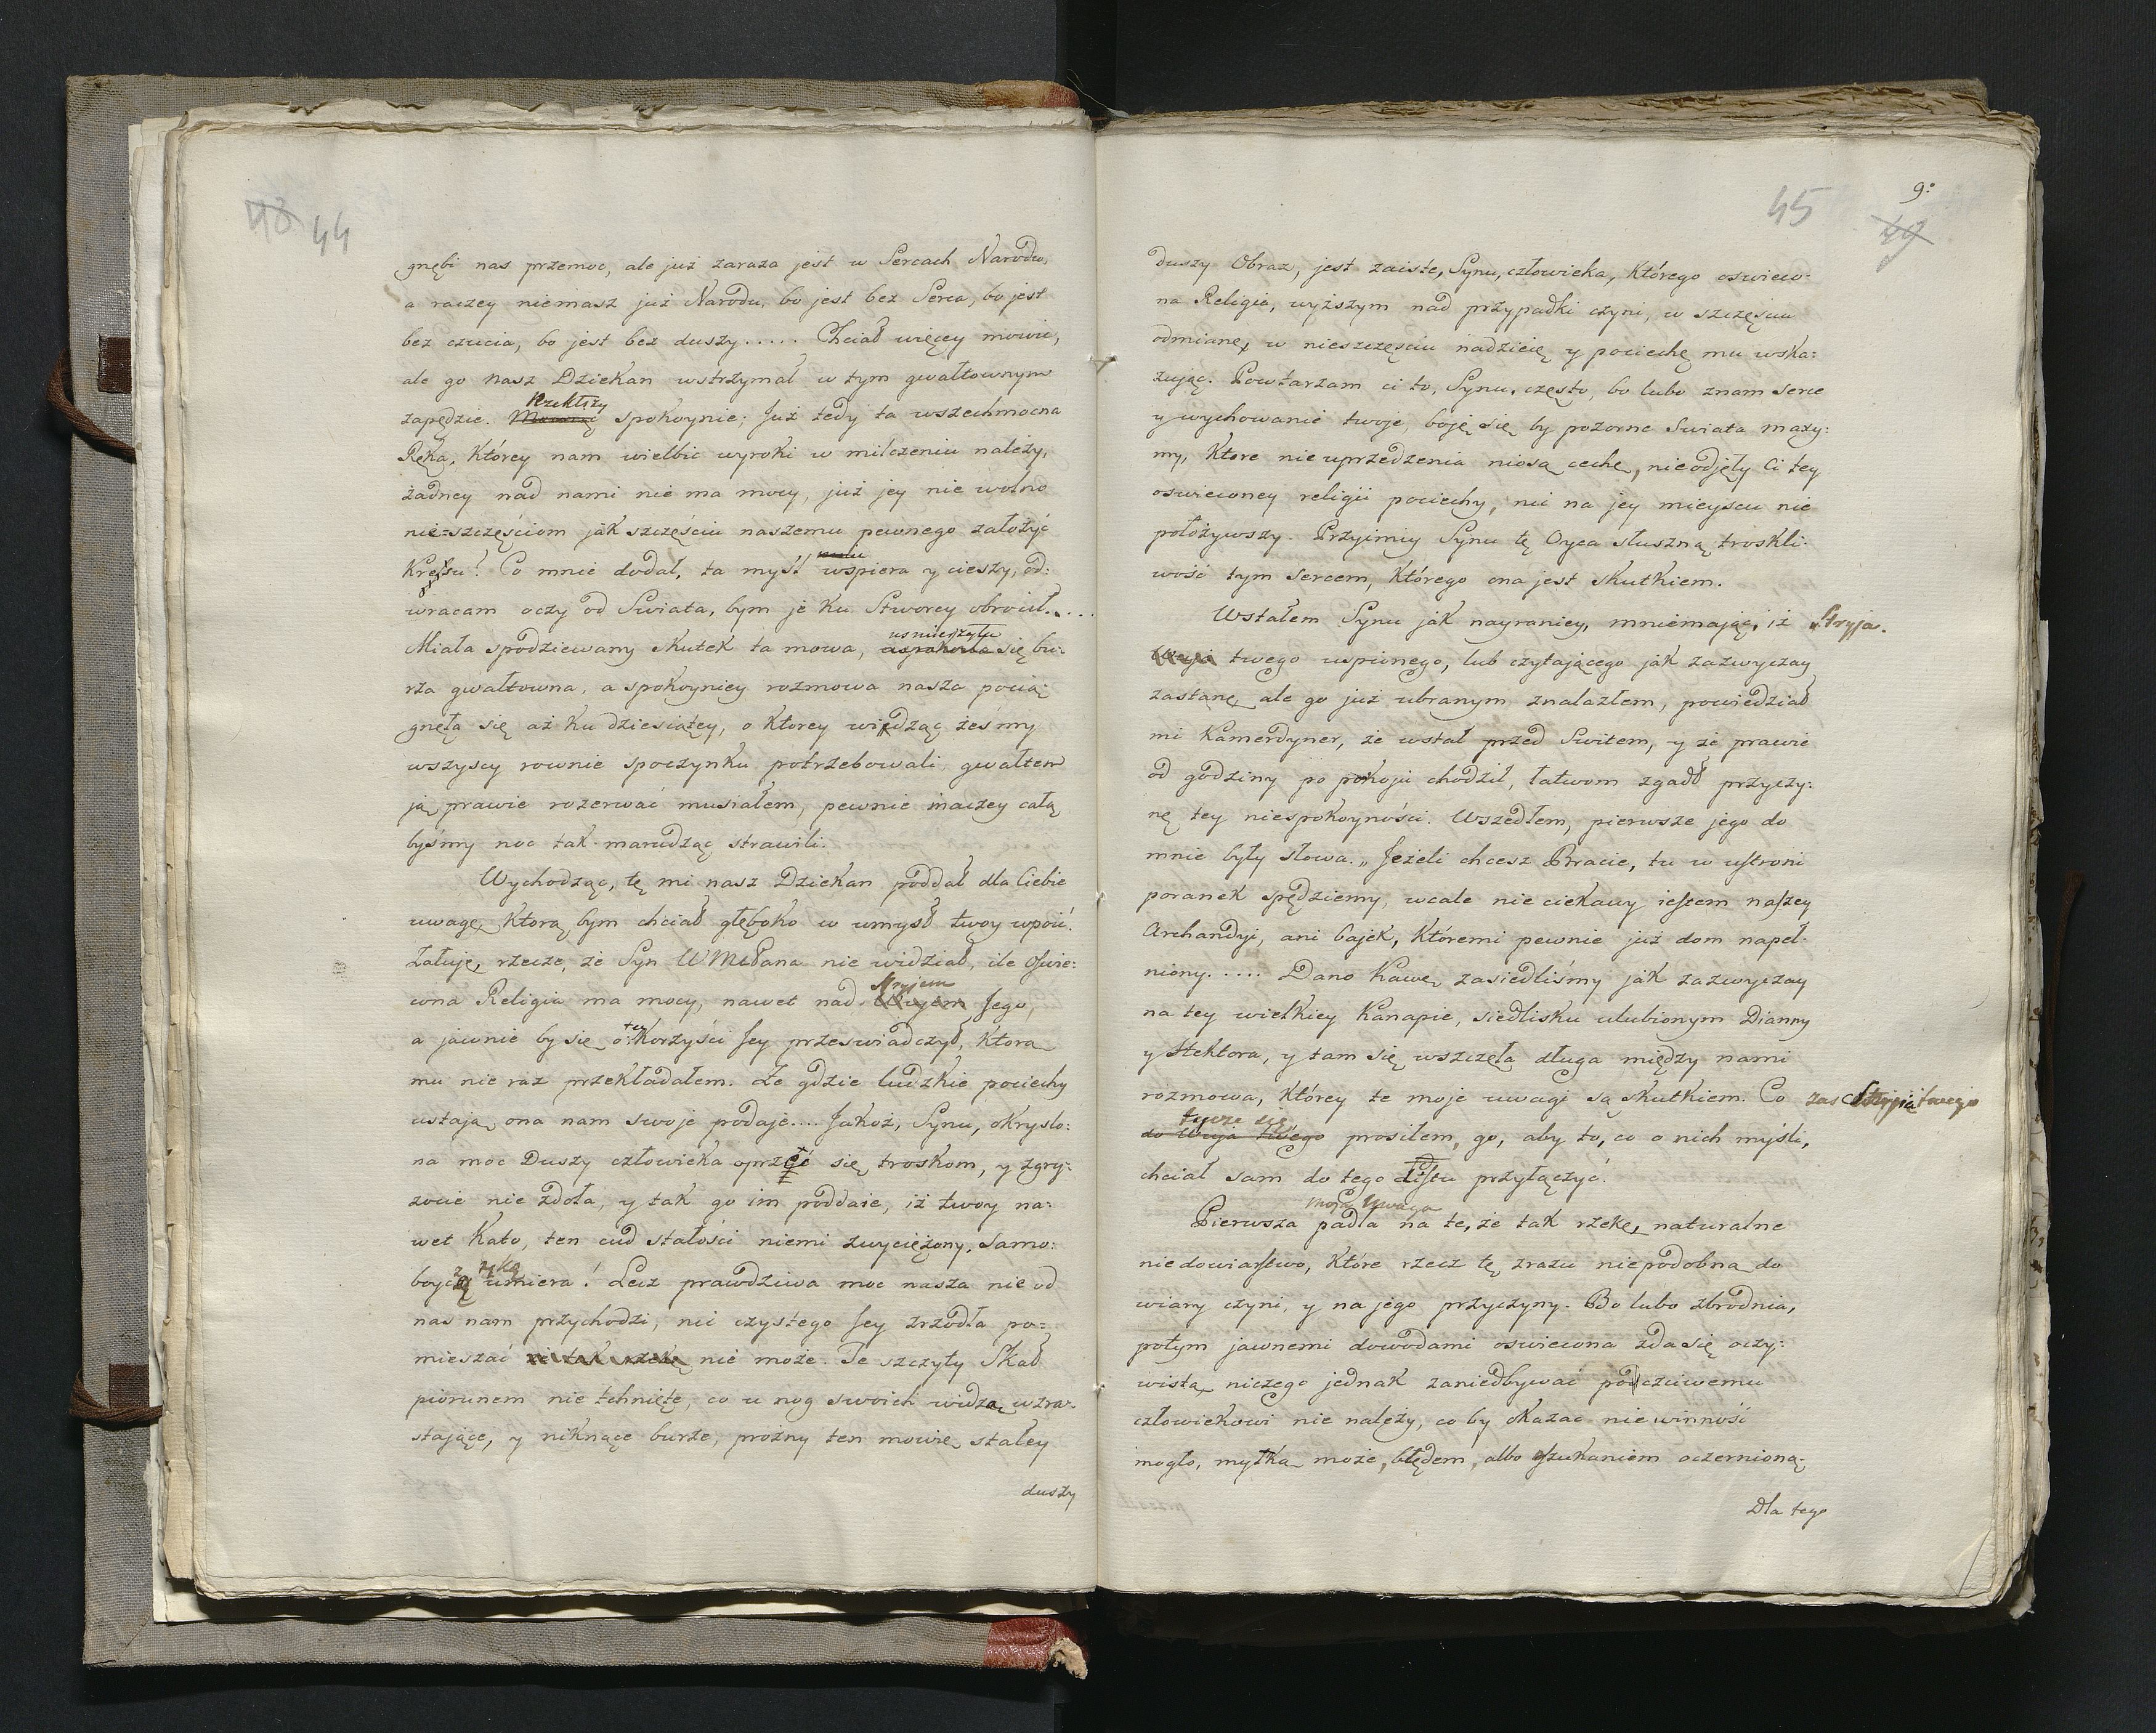 43 44
gnębi nas przemoc, ale już zaraza jest w Sercach Narodu,
a raczey niemasz już Narodu, bo jest bez Serca, bo jest
bez czucia, bo jest bez duszy..... Chciał więcey mowić,
ale go nasz Dziekan wstrzymał w tym gwałtownym
Rzekłszy
zapędzie. spokoynie; Już tedy ta wszechmocna
Ręka, Którey nam wielbić wyroki w milczeniu należy,
żadney nad nami nie ma mocy, już jey nie wolno
nie=szczęściom jak szczęściu naszemu pewnego założyć
Kresu! Co mnie dodał, ta myśl wspiera y cieszy, od:
wracam oczy od Swiata, bym je Ku Stworcy obrocił.....
usmierzyła
Miała spodziewany skutek ta mowa, uspokoiła się bu:
rza gwałtowna, a spokoyniey rozmowa nasza pocią:
gnęła się aż ku dziesiątey, o Ktorey widząc żeśmy
wszyscy rownie spoczynku potrzebowali, gwałtem
ją prawie rozerwać musiałem, pewnie inaczey całą
byśmy noc tak marudząc strawili.
Wychodząc, tę mi nasz Dziekan poddał dla Ciebie
uwagę, Ktorą bym chciał głęboko w umysł twoy wpoić.
Załuję, rzecze, że Syn WMPana nie widział, ile oświe:
Stryjem
cona Religia ma mocy, nawet nad Wujem Jego,
tey
a jawnie by się o Korzyści Jey przeswiadczył, Ktora
mu nie raz przekładałem. Że gdzie ludzkie pociechy
ustają, ona nam swoje podaje.... Jakoż, Synu, okryslo:
na moc Duszy człowieka oprzeć się troskom, y zgry:
zocie nie zdoła, y tak go im poddaie, iż twoy na:
wet Kato, ten cud stałości niemi zwyciężony, samo:
ręką
boyczą umiera! Lecz prawdziwa moc nasza nie od
nas nam przychodzi, nic czystego Jey zrzodła po=
mieszać nie może. Te szczyty Skał
piorunem nie tchnięte, co u nog swoich widzą wzra:
stające, y niknące burze, prożny ten mowię stałey
duszy
45 9:
duszy Obraz, jest zaiste, Synu, człowieka, Którego oswieco:
na Religia, wyższym nad przypadki czyni, w szczęsciu
odmianę, w nieszczęsciu nadzieię y pociechę mu wska:
zując. Powtarzam ci to, Synu, często, bo lubo znam serce
y wychowanie twoje, boję się by pozorne Swiata maxy:
my, Ktore nieuprzedzenia niosą cechę, nie odjęły Ci tey
oswieconey religii pociechy, nic na jey mieyscu nie
położywszy. Przyimiy Synu tę Oyca słuszną troskli:
wość tym sercem, Którego ona jest skutkiem.
Wstałem Synu jak nayraniey, mniemając, iż Stryja.
twego uspionego, lub czytającego jak zazwyczay
zastanę, ale go już ubranym znalazłem, powiedział
mi Kamerdyner, że wstał przed Switem, y że prawie
od godziny po pokoju chodził, łatwom zgadł przyczy:
nę tey niespokoyności. Wszedłem, pierwsze jego do
mnie były słowa. „Jeżeli chcesz Bracie, tu w ustroni
poranek spędziemy, wcale nie ciekawy iestem naszey
Archandyi, ani bajek, Któremi pewnie już dom napeł:
niony..... Dano Kawę, zasiedliśmy jak zazwyczay
na tey wielkiey Kanapie, siedlisku ulubionym Dianny
y Hektora, y tam się wszczęła długa między nami
rozmowa, Którey te moje uwagi są skutkiem. Co zas Stryia twego
tycze się
do Wuja twego prosiłem, go, aby to, co o nich myśli,
chciał sam do tego Listu przyłączyć.
moja uwaga
Pierwsza padła na te, że tak rzekę, naturalne
niedowiarstwo, Które rzecz tę zrazu niepodobną do
wiary czyni, y na jego przyczyny. Bo lubo zbrodnia,
potym jawnemi dowodami oswiecona zda się oczy:
wistą, niczego jednak zaniedbywać poczciwemu
człowiekowi nie należy, co by okazać niewinność
mogło, myłką może, błędem, albo oszukaniem oczernioną.
Dla tego